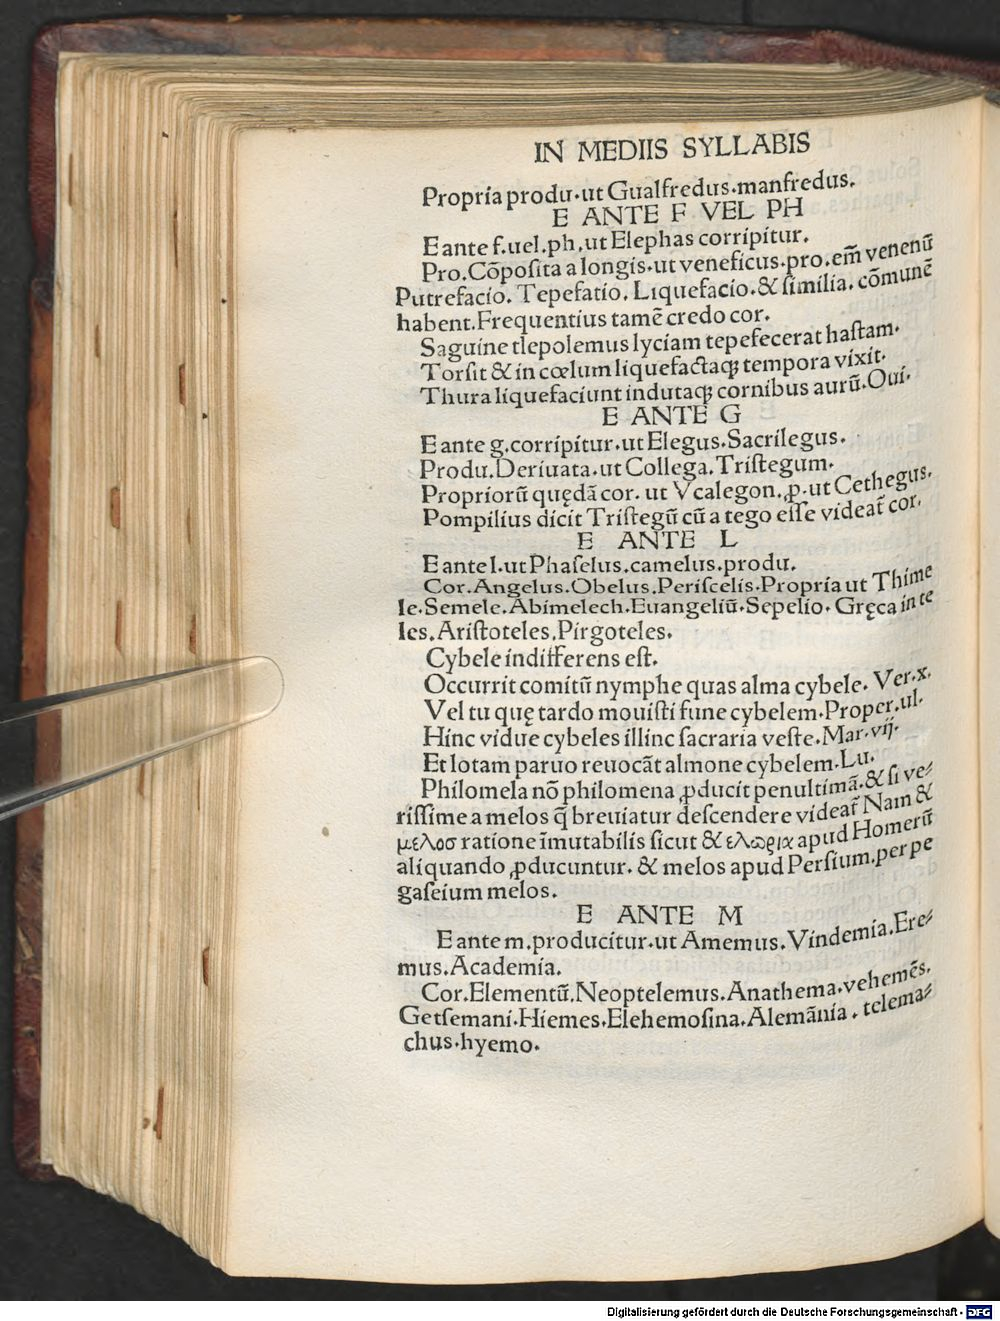 IN MEDIIS SYLLABIS
Propria produ.ut Gualfredus.manfredus.
E ANTE F VEL PH
E ante f.uel.ph.ut Elephas corripitur.
Pro.Cōpoſita a longis.ut veneficus.pro.em̄ venenū
Putrefacio. Tepefatio. Liquefacio.& ſimilia. cōmunē
habent.Frequentius tamē credo cor.
Saguine tlepolemus lyciam tepefecerat haſtam.
Torſit & in cœlum liquefactaqꝫ tempora vixit.
Thura liquefaciunt indutaqꝫ cornibus aurū.Oui.
E ANTE G
E ante g.corripitur.ut Elegus.Sacrilegus.
Produ.Deriuata.ut Collega.Triſtegum.
Propriorū quędā cor. ut Vcalegon.ꝓ.ut Cethegus.
Pompilius dicit Triſtegū cū a tego eſſe videat̄ cor.
E ANTE L
E ante l.ut Phaſelus.camelus.produ.
Cor.Angelus.Obelus.Periſcelis.Propria ut Thime
le.Semele.Abimelech.Euangeliū.Sepelio. Gręca in te
les.Ariſtoteles.Pirgoteles.
Cybele indifferens eſt.
Occurrit comitū nymphe quas alma cybele. Ver.x.
Vel tu quę tardo mouiſti fune cybelem.Proper.ul.
Hinc vidue cybeles illinc ſacraria veſte.Mar.vij.
Et lotam paruo reuocāt almone cybelem.Lu.
Philomela nō philomena ꝓducit penultimā.& ſi ve⸗
riſſime a melos q̄ breuiatur deſcendere videat̄ Nam &
μελοσ ratione īmutabilis ſicut & ελωρια apud Homerū
aliquando ꝓducuntur. & melos apud Perſium.per pe
gaſeium melos.
E ANTE M
E ante m.producitur.ut Amemus.Vindemia.Ere⸗
mus.Academia.
Cor.Elementū.Neoptelemus.Anathema.vehemēs.
Getſemani.Hiemes.Elehemoſina.Alemānia . telema⸗
chus.hyemo.
Digitalisierung gefördert durch die Deutsche Forschungsgemeinschaft - DFG